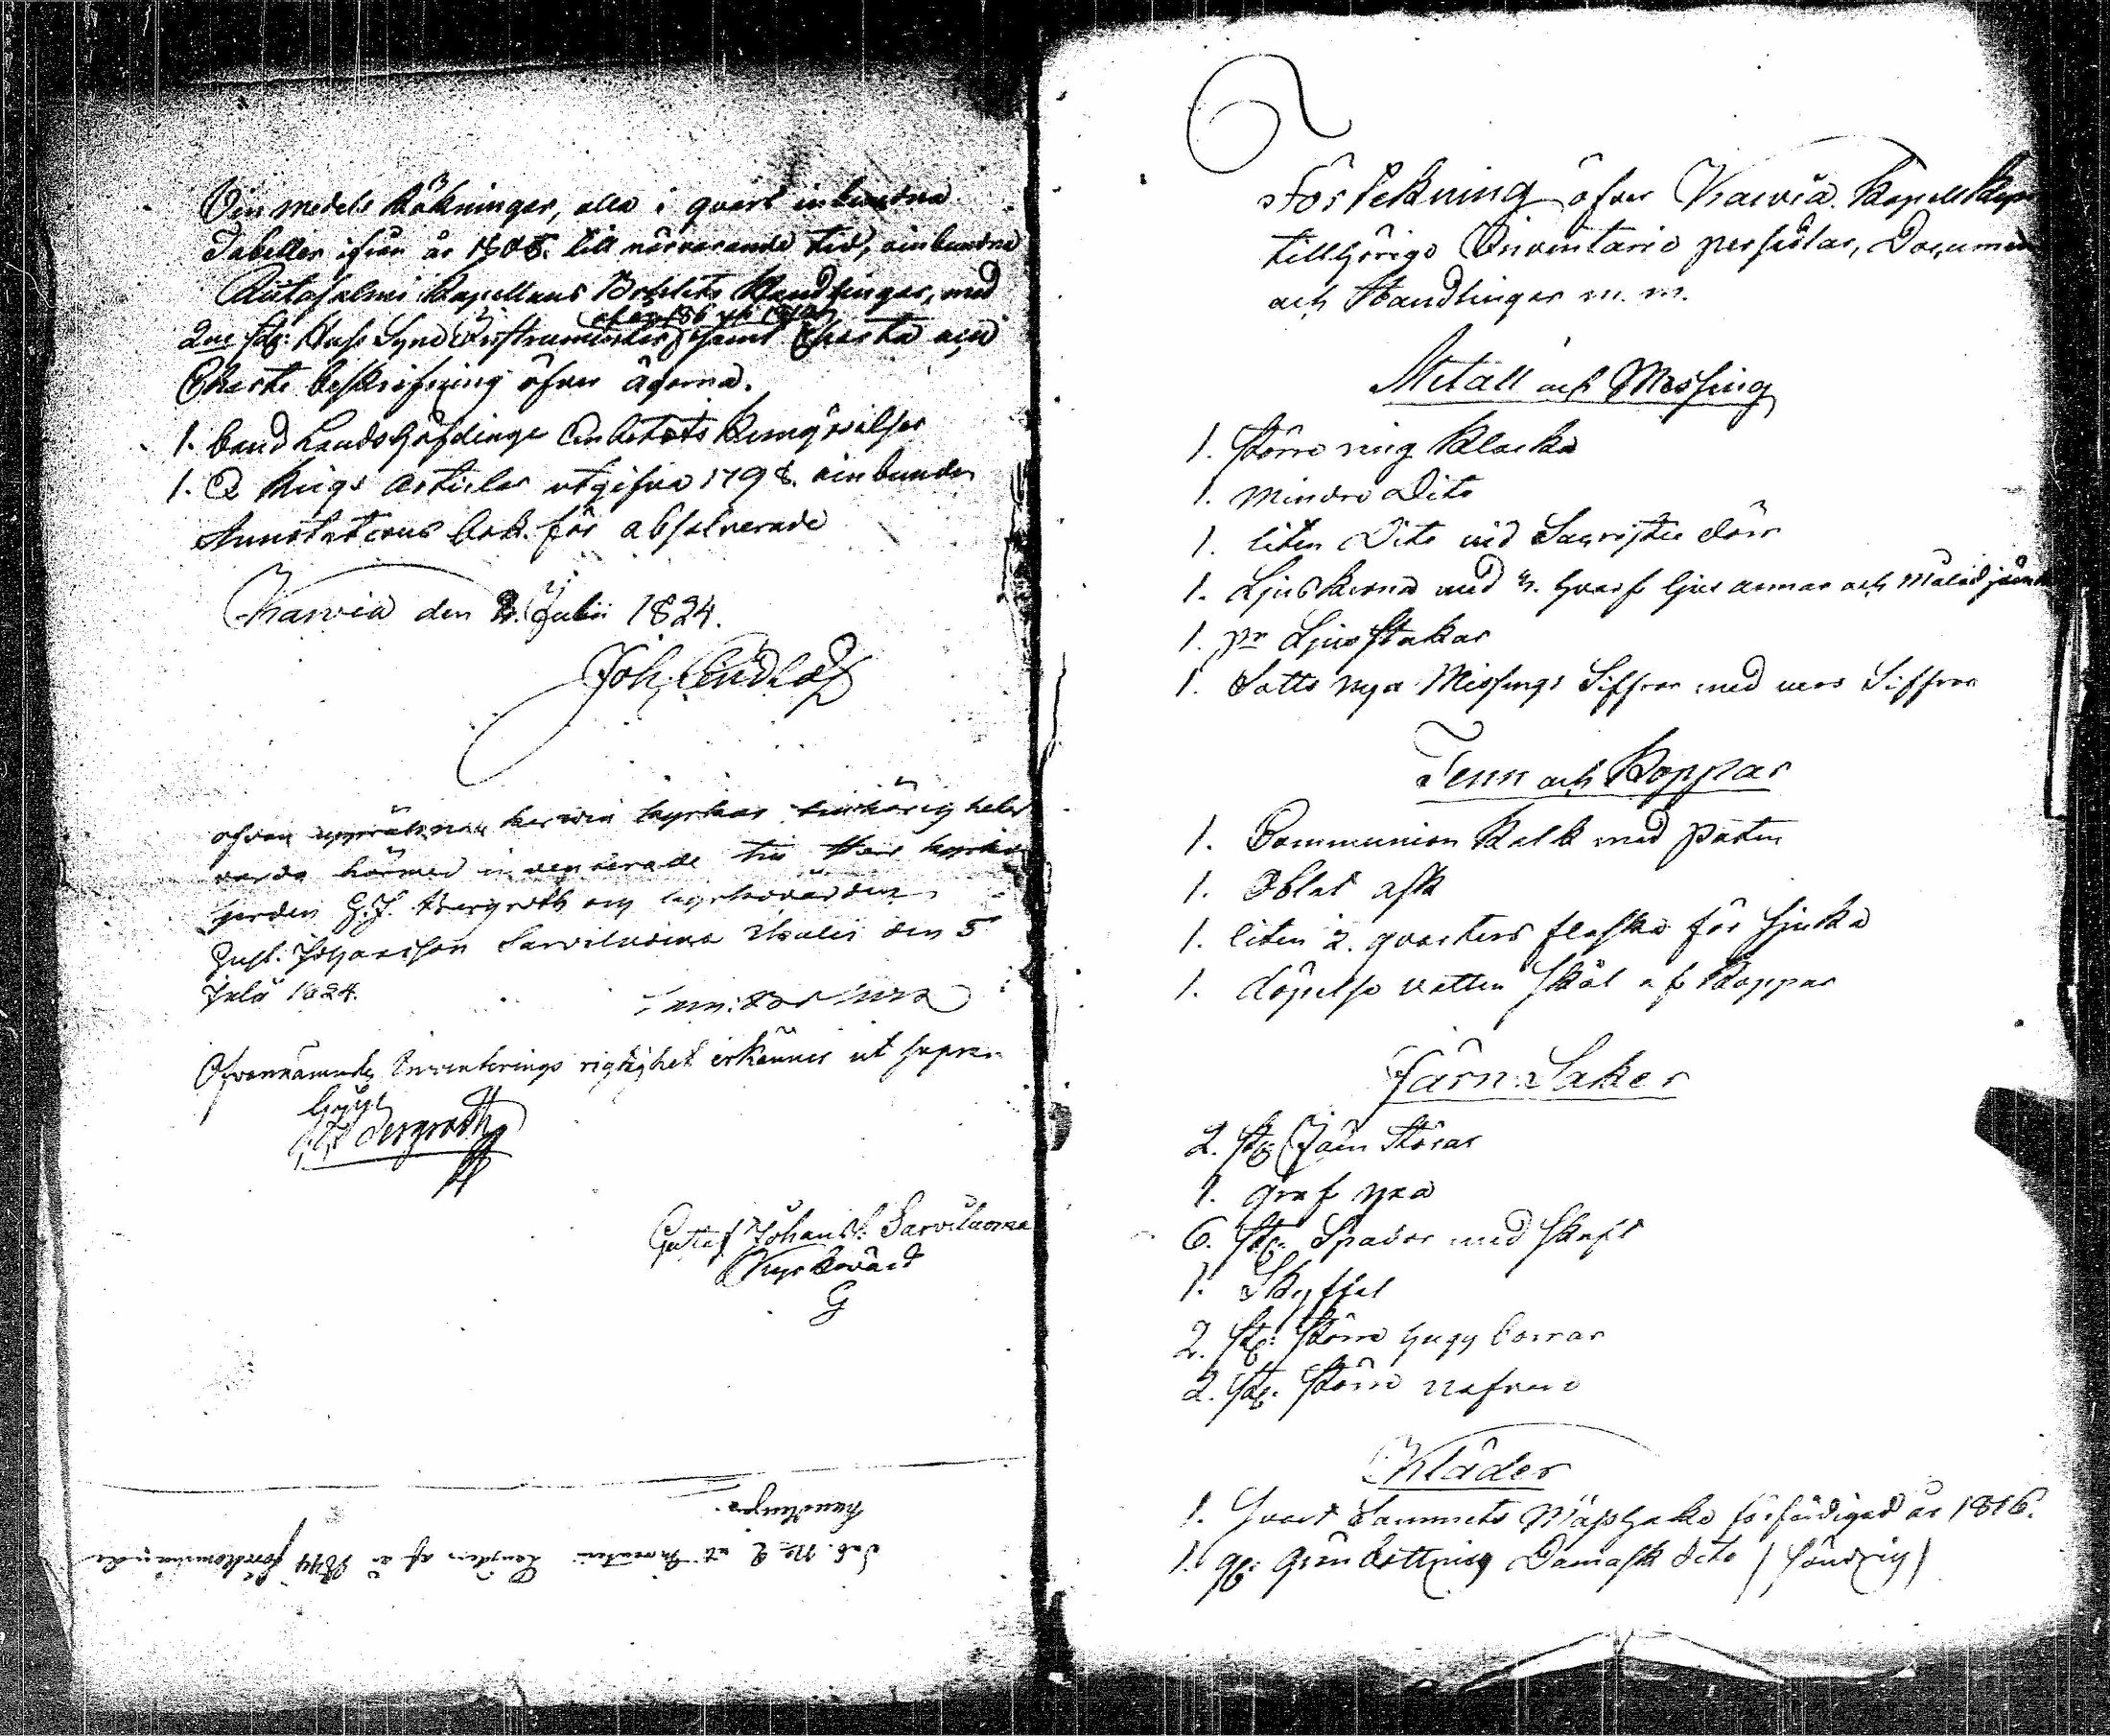 Vin medels Räkningar, alla i qvart inbundna
Tabeller ifrån år 1805. till närvarande tid, inbundna
Kapellans Bohlets Handlingar, med
2ne st: Husesyns Instrumenter samt Charta och
Charte beskrifning öfver ägorna.
1. band Landshöfdinge Embetets Kungörelser
1. D Krigs Articlar utgifna 1798. inbunden
Annotations bok för absolverade
Karvia den 2. Julii 1824.
Joh.
ofvan uppräknade Karvia kyrkas tillhörigheter
varda härmed inventerade till
G. J. Bergroth och kyrkovärden
Gust. Johansson Sarviluoma den 5
Julii 1824.
Ofvannämnde Inventerings rigtighet erkännes ut supra.
Bergroth
Gustaf Johanss: Sarviluoma
Kyrkovärd
G
Förtekning öfver Karvia Kapell
tillhörige Inventarie persedlar,
och Handlingar m. m.
Metall och Messing
1. större ring Klocka
1. mindre Dito
1. liten Dito vid Sacristie dörr
1. Ljus Krona med 2. hvarf ljus armar och målad
1. pr Ljus stakar
1. Satts nya Messings Siffror med vers Siffror
Tenn och Koppar
1. Communion Kalk med Paten
1. Oblat ask
1. liten 2. qvarters flaska för sjuka
1. döpelse vatten skål af Koppar
Järn Saker
2. st: Järn Störar
1. graf yxa
6. st: Spador med skaft
1. Skyffel
2. st: större hugg borrar
2. st: större nafvare
Kläder
1. svart Sammets Mässhake förfärdigad år 1816.
1. gl: grön bottnig Damask dito / söndrig /
Lab. No 2 uti Inventarii Längden af år 1844 förekommande
handlingar.